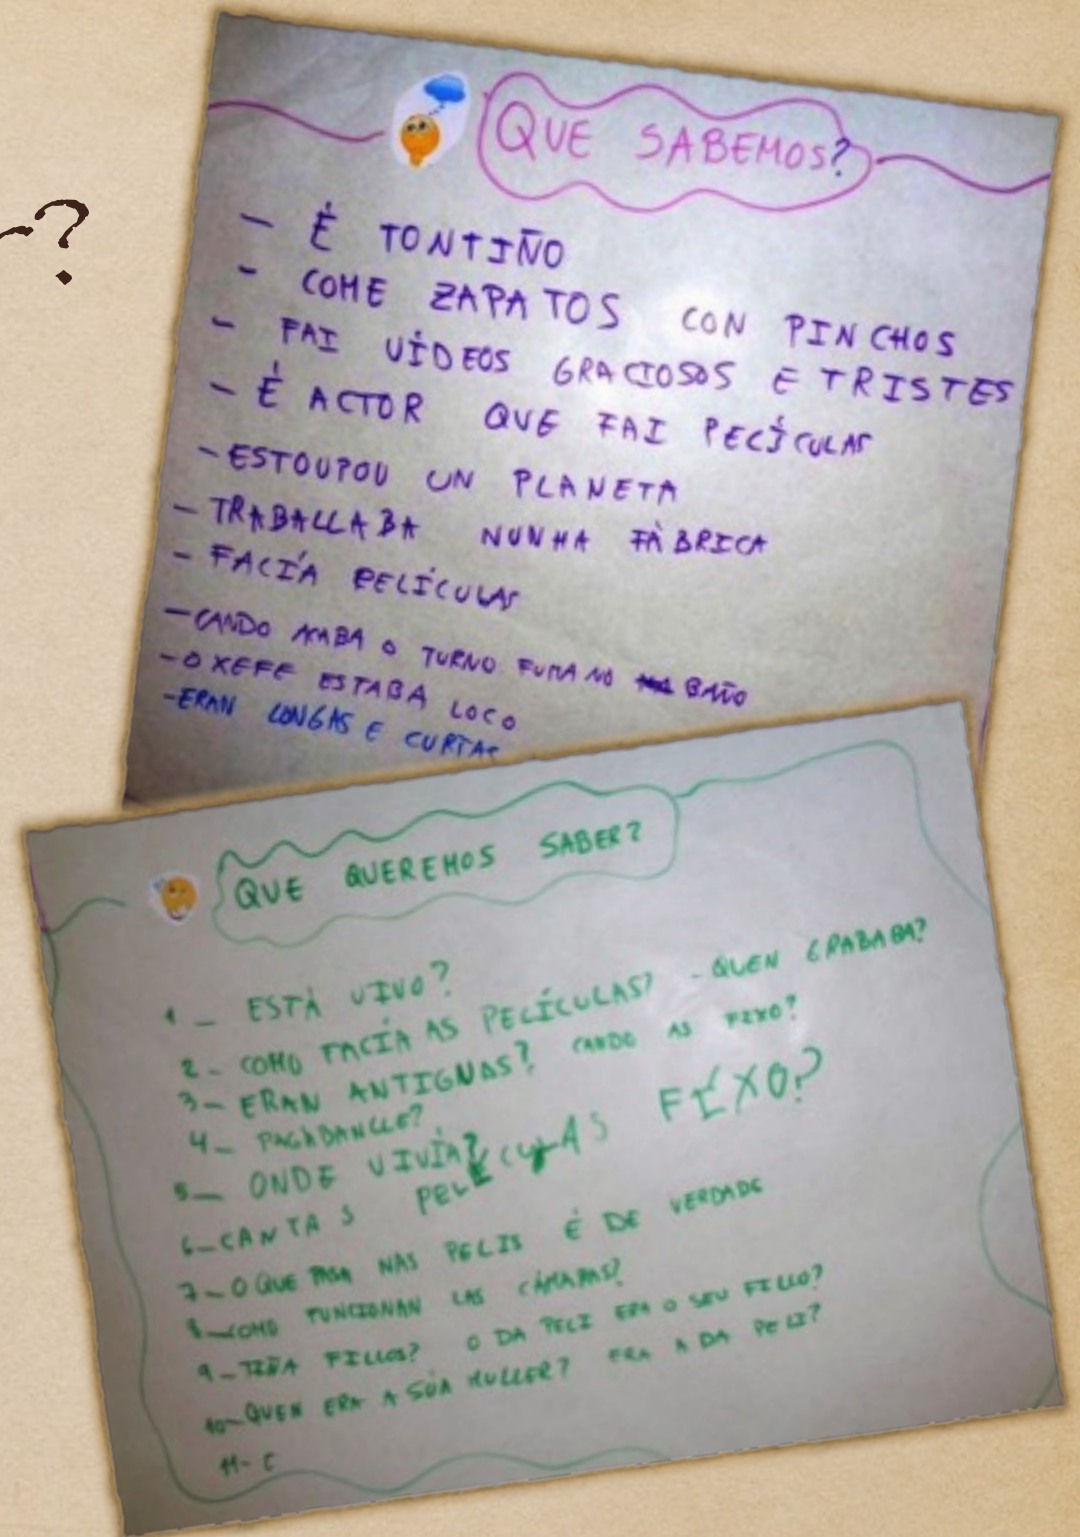 ?
QUE SABEMOS?
- É TONTIÑO
- COME ZAPATOS CON PINCHOS
- FAI VÍDEOS GRACIOSOS E TRISTES
- É ACTOR QUE FAI PELÍCULAS
- ESTOUPOU UN PLANETA
- TRABALLABA NUNHA FÁBRICA
- FACÍA PELÍCULAS
- CANDO ACABA O TURNO FUMA NO BAÑO
- O XEFE ESTABA LOCO
- ERAN LONGAS E CURTAS
QUE QUEREMOS SABER?
1 - ESTÁ VIVO?
2 - COMO FACÍA AS PELÍCULAS? - QUEN GRABABA?
3 - ERAN ANTIGUAS? CANDO AS FIXO?
4 - PAGÁBANLLE?
5 - ONDE VIVÍA?
6 - CANTAS PELÍCULAS FÍXO?
7 - O QUE PASA NAS PELIS É DE VERDADE
8 - COMO FUNCIONAN LAS CÁMARAS?
9 - TIÑA FILLOS? O DA PELI ERA O SEU FILLO?
10 - QUEN ERA A SÚA MULLER? ERA A DA PELI?
11 - C